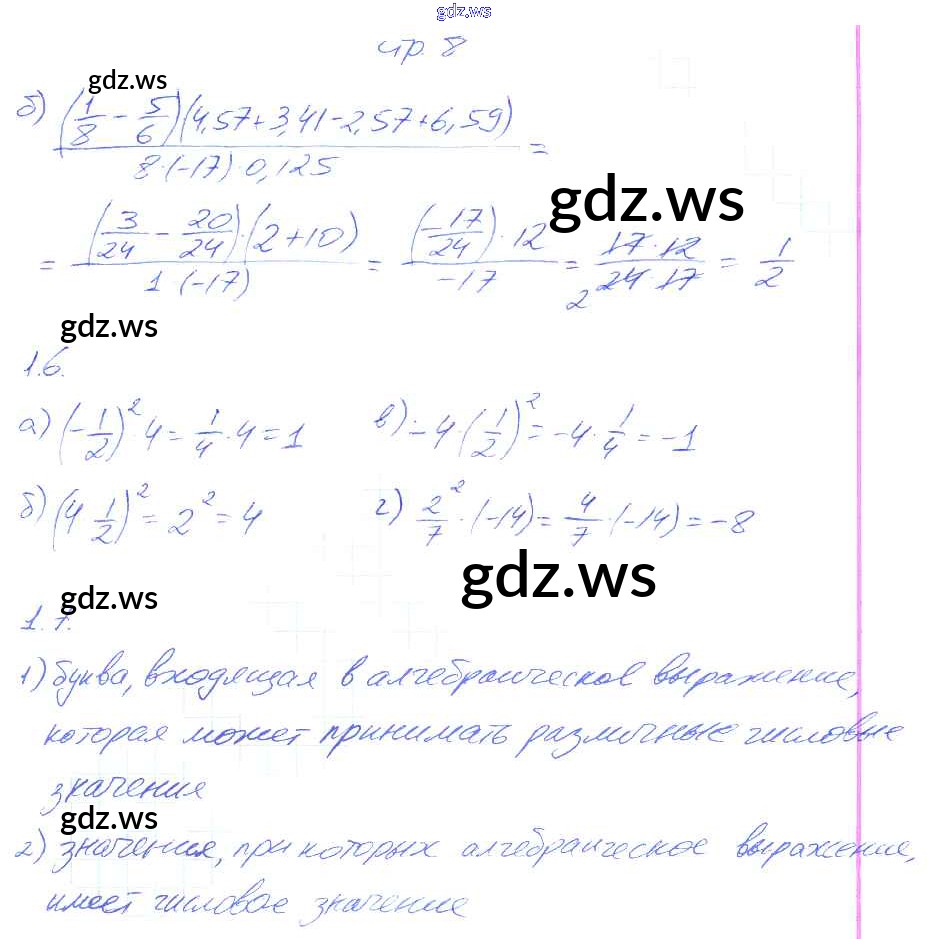 gdz.ws
стр. 8
gdz.ws
б) (1/8 − 5/6)(4,57+3,41−2,57+6,59) / 8·(−17)·0,125 =
gdz.ws
= (3/24 − 20/24)·(2+10) / 1·(−17) = (−17/24)·12 / −17 = 17·12 / 2 24·17 = 1/2
gdz.ws
1.6.
а) (−1/2)²·4 = 1/4·4 = 1 в) −4·(1/2)² = −4·1/4 = −1
б) (4 1/2)² = 2² = 4 г) 2²/7·(−14) = 4/7·(−14) = −8
gdz.ws
gdz.ws
1.7.
1) буква, входящая в алгебраическое выражение,
которая может принимать различные числовые
значения
gdz.ws
2) значения, при которых алгебраическое выражение,
имеет числовое значение